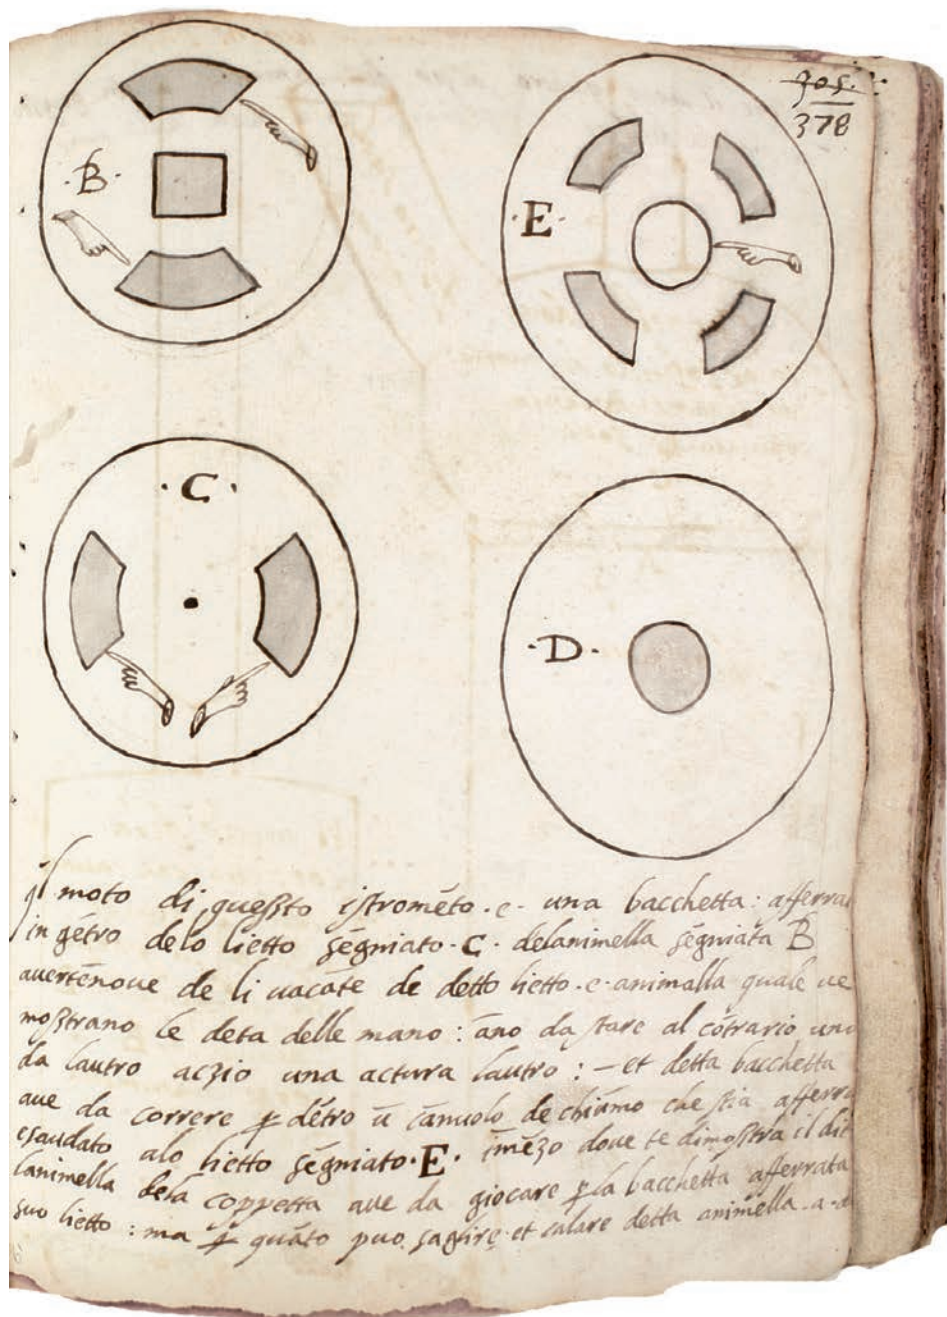 ·B·
·E·
305.
378
·C·
·D·
Il moto di questo istromēto · e · una bacchetta : afferrat
in gētro delo lietto segniato · C · delanimella segniata B
auertēnoue de li uacāte de detto lietto · e · animalla quale ue
mostrano le deta delle mano : āno da stare al cōtrario uno
da lautro aczio una actura lautro : – et detta bacchetta
aue da correre ꝑ dētro ū cānuolo de chiūmo che stia afferra
esaudato alo lietto segniato · E · īmezo doue te dimostra il dit
lanimella dela coppetta aue da giocare ꝑ la bacchetta afferrata
suo lietto : ma ꝑ quāto puo saglire et calare detta animella · a ·